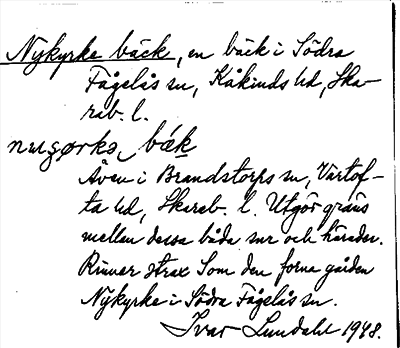 Nykyrke bäck, en bäck i Södra
Fågelås sn, Kåkinds hd, Ska-
rab. l.
nugørkə bǽk
Även i Brandstorps sn, Vartof-
ta hd, Skarab. l. Utgör gräns
mellan dessa båda snr och härader.
Rinner strax S om den forna gården
Nykyrke i Södra Fågelås sn.
Ivar Lundahl 1948.